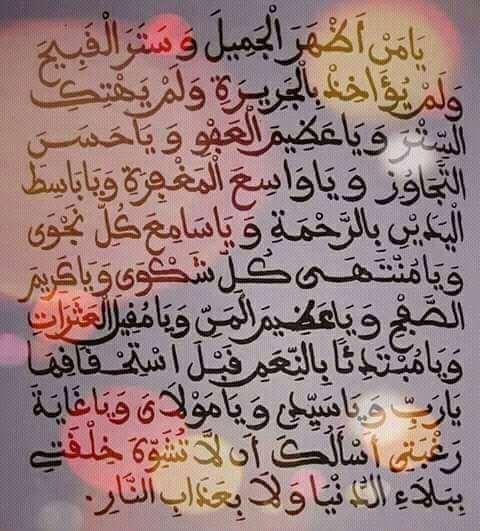 يَامَنْ أَظْهَرَ الْجَمِيلَ وَسَتَرَ الْقَبِيحَ
وَلَمْ يُؤَاخِذْ بِالْجَرِيرَةِ وَلَمْ يَهْتِكِ
السِّتْرَ وَيَاعَظِيمَ الْعَفْوِ وَيَاحَسَنَ
التَّجَاوُزِ وَيَاوَاسِعَ الْمَغْفِرَةِ وَيَابَاسِطَ
الْيَدَيْنِ بِالرَّحْمَةِ وَيَاسَامِعَ كُلِّ نَجْوَى
وَيَامُنْتَهَى كُلِّ شَكْوَى وَيَاكَرِيمَ
الصَّفْحِ وَيَاعَظِيمَ الْمَنِّ وَيَامُقِيلَ الْعَثَرَاتِ
وَيَامُبْتَدِئًا بِالنِّعَمِ قَبْلَ اسْتِحْقَاقِهَا
يَارَبِّ وَيَاسَيِّدِي وَيَامَوْلَاىَ وَيَاغَايَةَ
رَغْبَتِي أَسْأَلُكَ أَن لَّا تُشَوِّهَ خِلْقَتِي
بِبَلَاءِ الدُّنْيَا وَلَا بِعَذَابِ النَّارِ.